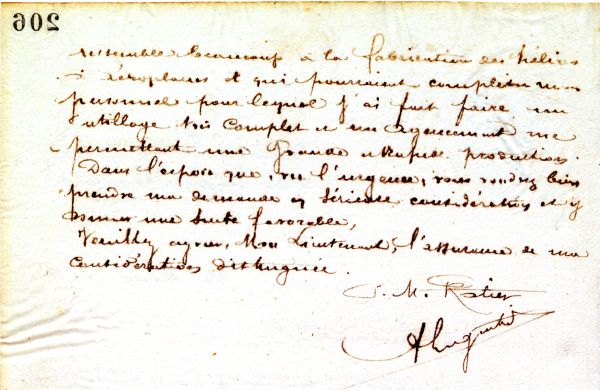 206
ressemble beaucoup à la fabrication des hélices
d'aéroplanes et qui pourraient compléter mon
personnel pour lequel j'ai fait faire un
outillage très complet et un agencement me
permettant une grande et rapide production.
Dans l'espoir que, vu l'urgence, vous voudrez bien
prendre ma demande en sérieuse considération et y
donner une suite favorable,
Veuillez agréer, Mon Lieutenant, l'assurance de ma
considération distinguée.
M. Ratier